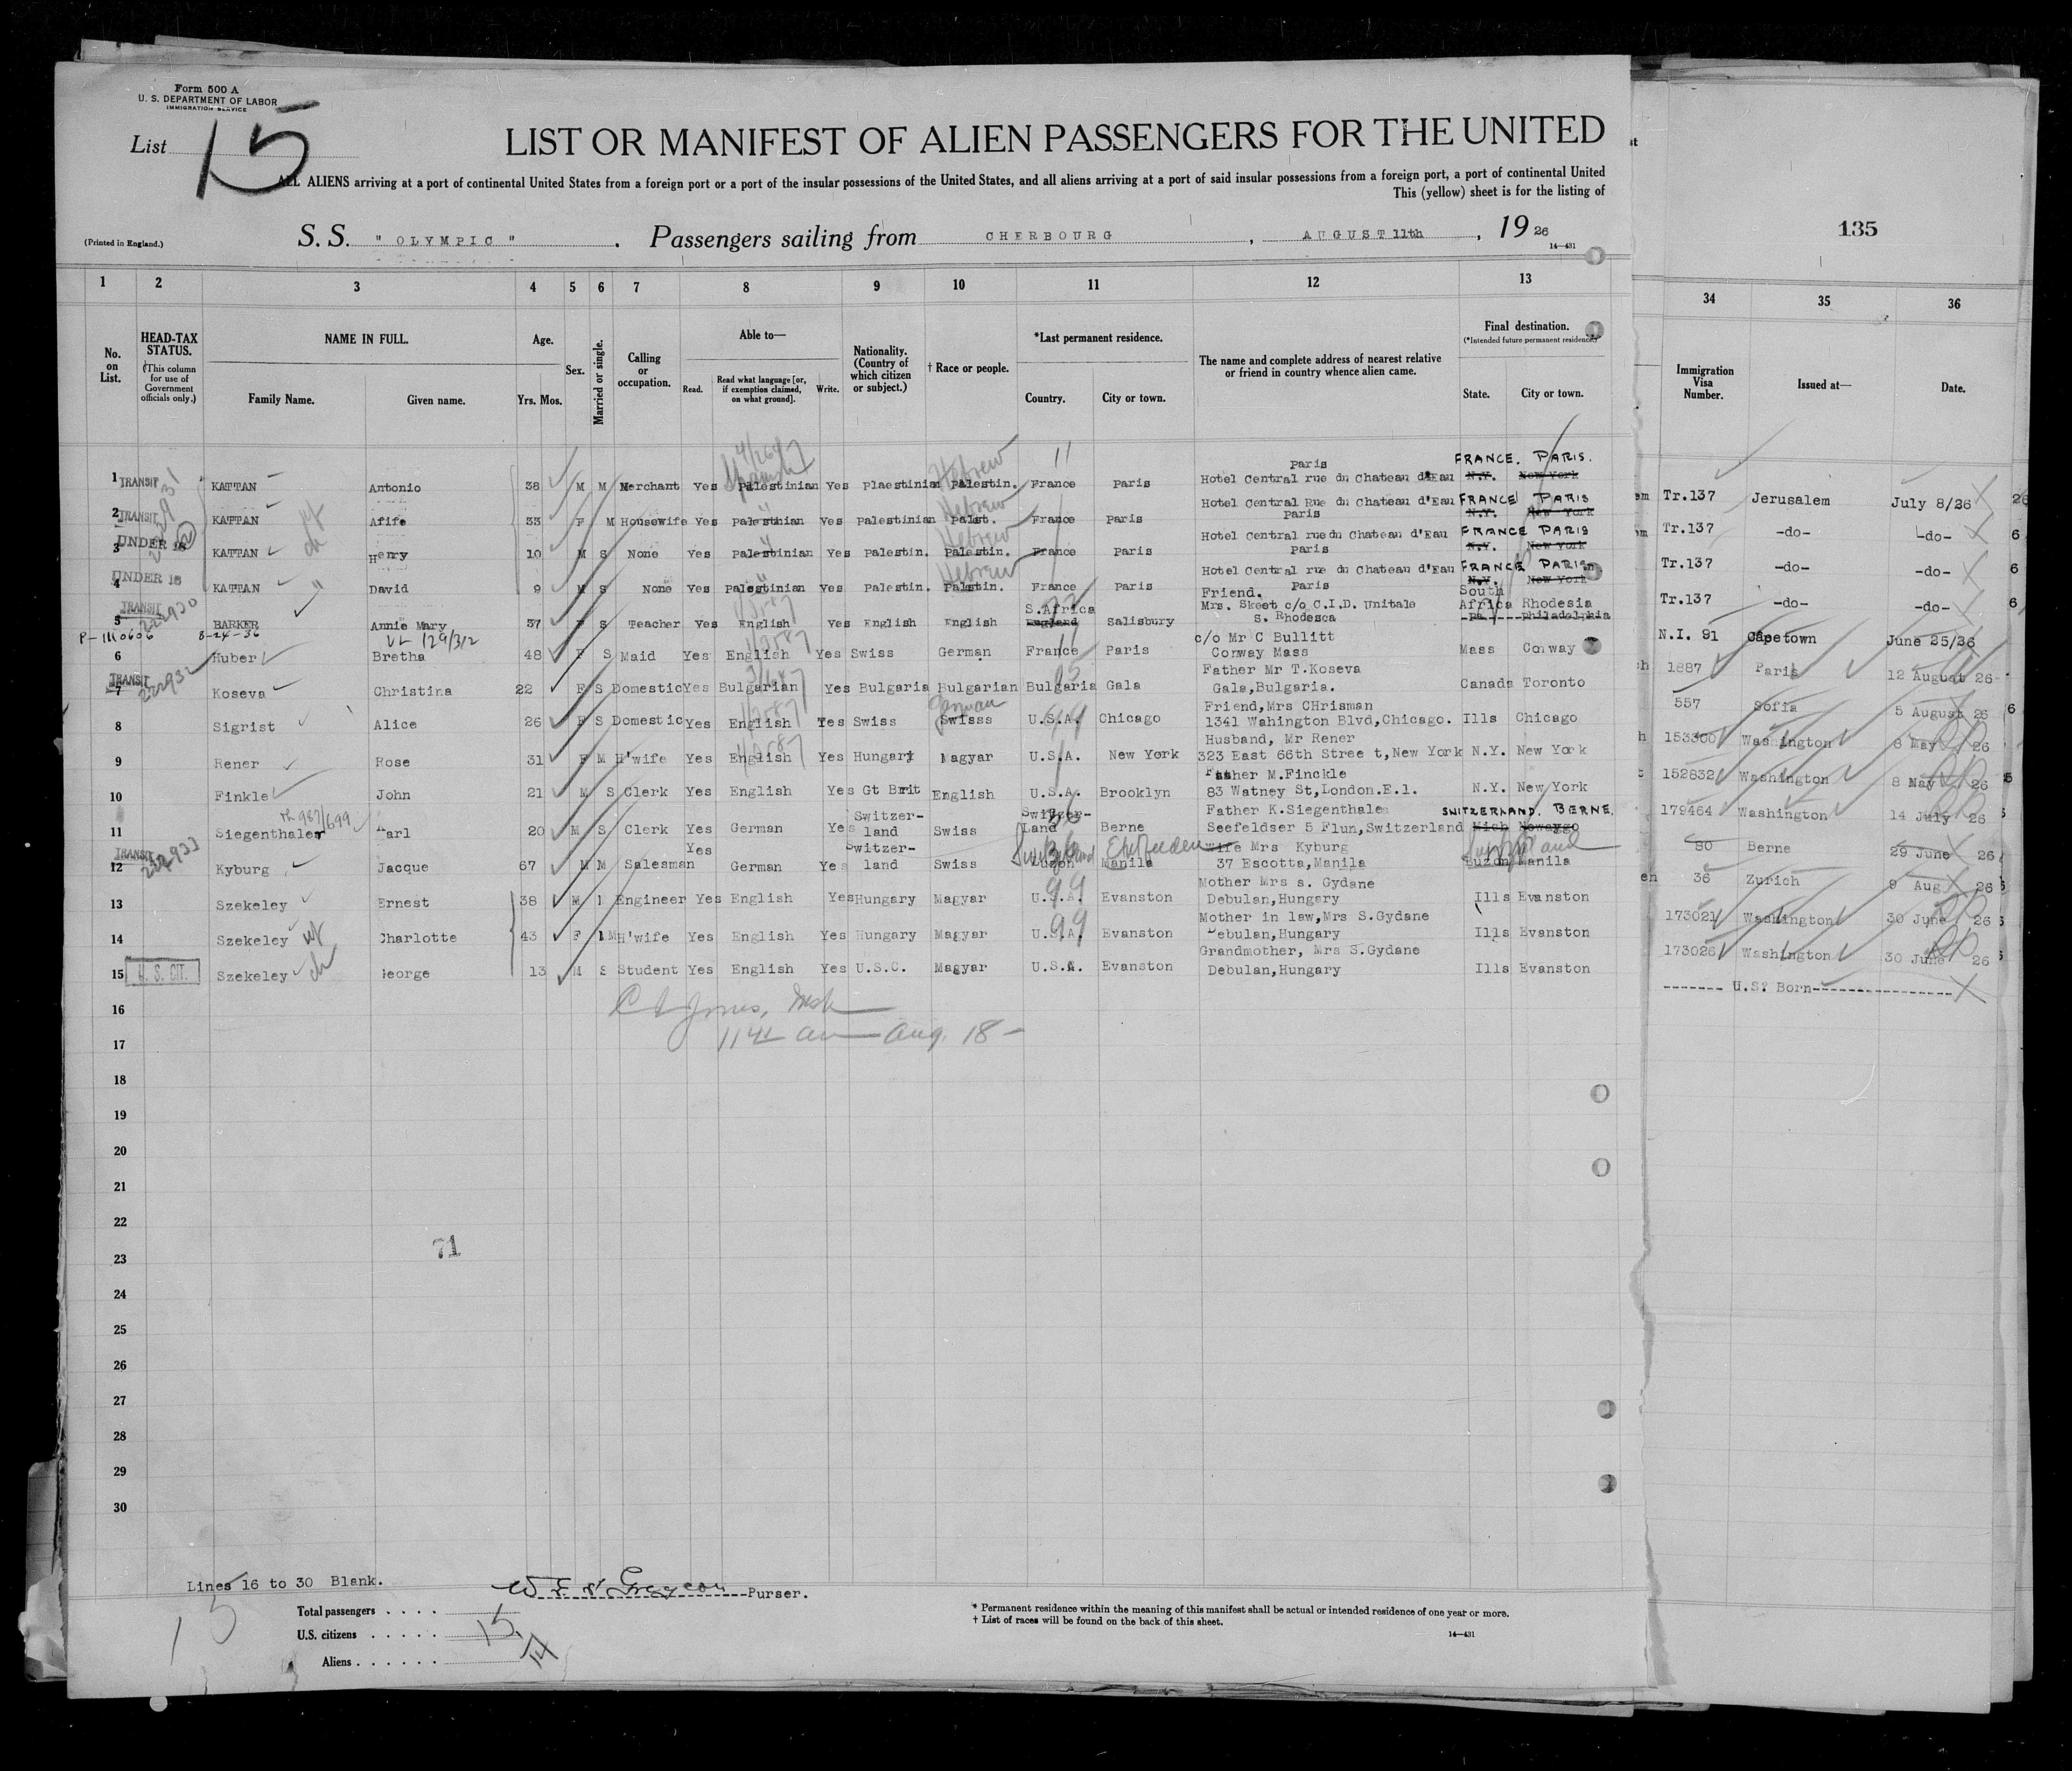 Form 500 A
U. S. DEPARTMENT OF LABOR
IMMIGRATION SERVICE
List 15
LIST OR MANIFEST OF ALIEN PASSENGERS FOR THE UNITED
ALL ALIENS arriving at a port of continental United States from a foreign port or a port of the insular possessions of the United States, and all aliens arriving at a port of said insular possessions from a foreign port, a port of continental United
This (yellow) sheet is for the listing of
(Printed in England.)
S. S. " OLYMPIC " . Passengers sailing from CHERBOURG , AUGUST 11th , 19 26
14—431
135
1 2 3 4 5 6 7 8 9 10 11 12 13 34 35 36
No. on List.
HEAD-TAX STATUS.
(This column for use of Government officials only.)
NAME IN FULL.
Family Name. Given name.
Age.
Yrs. Mos.
Sex.
Married or single.
Calling or occupation.
Able to—
Read. Read what language [or, if exemption claimed, on what ground]. Write.
Nationality. (Country of which citizen or subject.)
† Race or people.
*Last permanent residence.
Country. City or town.
The name and complete address of nearest relative or friend in country whence alien came.
Final destination.
(*Intended future permanent residence)
State. City or town.
Immigration Visa Number.
Issued at—
Date.
1 TRANSIT KATTAN Antonio 38 M M Merchant Yes Palestinian Spanish Yes Plaestinian Palestin. Hebrew France Paris Hotel Central rue du Chateau d'Eau Paris N.Y. New York FRANCE. PARIS. Tr.137 Jerusalem July 8/26
2 TRANSIT KATTAN Afife 33 F M Housewife Yes Palestinian Yes Palestinian Palst. Hebrew France Paris Hotel Central Rue du Chateau d'Eau Paris N.Y. New York FRANCE PARIS Tr.137 -do- -do-
3 UNDER 16 KATTAN Henry 10 M S None Yes Palestinian Yes Palestin. Palestin. Hebrew France Paris Hotel Central rue du Chateau d'Eau Paris N.Y. New York FRANCE PARIS Tr.137 -do- -do-
4 UNDER 16 KATTAN David 9 M S None Yes Palestinian Yes Palestin. Palestin. Hebrew France Paris Hotel Central rue du Chateau d'Eau Paris N.Y. New York FRANCE PARIS Tr.137 -do- -do-
5 TRANSIT 222930 BARKER Annie Mary 37 F S Teacher Yes English Yes English English England S.Africa Salisbury Friend. Mrs. Skeet c/o C.I.D. Unitale S. Rhodesca Pa. Philadelphia South Africa Rhodesia N.I. 91 Capetown June 25/26
P-1110606 8-24-36 VL 129/312
6 Huber Bretha 48 F S Maid Yes English Yes Swiss German France Paris c/o Mr C Bullitt Conway Mass Mass Conway 1887 Paris 12 August 26
7 TRANSIT 222932 Koseva Christina 22 F S Domestic Yes Bulgarian Yes Bulgaria Bulgarian Bulgaria Gala Father Mr T.Koseva Gala,Bulgaria. Canada Toronto 557 Sofia 5 August 26
8 Sigrist Alice 26 F S Domestic Yes English Yes Swiss Swisss German U.S.A. Chicago Friend,Mrs CHrisman 1341 Wahington Blvd,Chicago. Ills Chicago 153300 Washington 8 May 26
9 Rener Rose 31 F M H'wife Yes English Yes Hungary Magyar U.S.A. New York Husband, Mr Rener 323 East 66th Stree t,New York N.Y. New York 152832 Washington 8 May 26
10 Finkle John 21 M S Clerk Yes English Yes Gt Brit English U.S.A. Brooklyn Father M.Finckle 83 Watney St,London.E.1. N.Y. New York 179464 Washington 14 July 26
11 Siegenthaler Karl 20 M S Clerk Yes German Yes Switzer-land Swiss Switzer-Land Berne Father K.Siegenthale Seefeldser 5 Flun,Switzerland Mich Newaygo SWITZERLAND. BERNE. 80 Berne 29 June 26
12 TRANSIT 222933 Kyburg Jacque 67 M M Salesman Yes German Yes Switzer-land Swiss Luzon Manila Switzerland wife Mrs Kyburg 37 Escotta,Manila Buzon Manila Switzerland 36 Zurich 9 Aug 26
13 Szekeley Ernest 38 M Engineer Yes English Yes Hungary Magyar U.S.A. Evanston Mother Mrs s. Gydane Debulan,Hungary Ills Evanston 173021 Washington 30 June 26
14 Szekeley wf Charlotte 43 F M H'wife Yes English Yes Hungary Magyar U.S.A. Evanston Mother in law,Mrs S.Gydane Debulan,Hungary Ills Evanston 173026 Washington 30 June 26
15 U.S. CIT. Szekeley ch George 13 M S Student Yes English Yes U.S.C. Magyar U.S.A. Evanston Grandmother, Mrs S.Gydane Debulan,Hungary Ills Evanston ------- U.S? Born-----------------
16
17
Aug. 18 -
18
19
20
21
22
23
71
24
25
26
27
28
29
30
Lines 16 to 30 Blank.
Purser.
15
Total passengers . . . . 15
U.S. citizens . . . . . 1
Aliens . . . . . . 14
* Permanent residence within the meaning of this manifest shall be actual or intended residence of one year or more.
† List of races will be found on the back of this sheet.
14—431